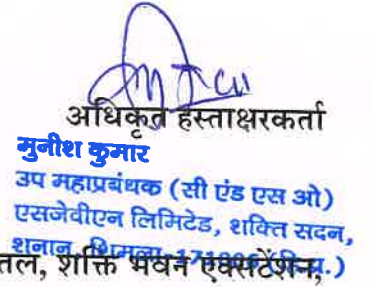 अधिकृत हस्ताक्षरकर्ता
मुनीश कुमार
उप महाप्रबंधक (सी एंड एस ओ)
एसजेवीएन लिमिटेड, शक्ति सदन,
शनान, शिमला-171006 (हि.प्र.)
तल, शक्ति भवन एक्सटेंशन,